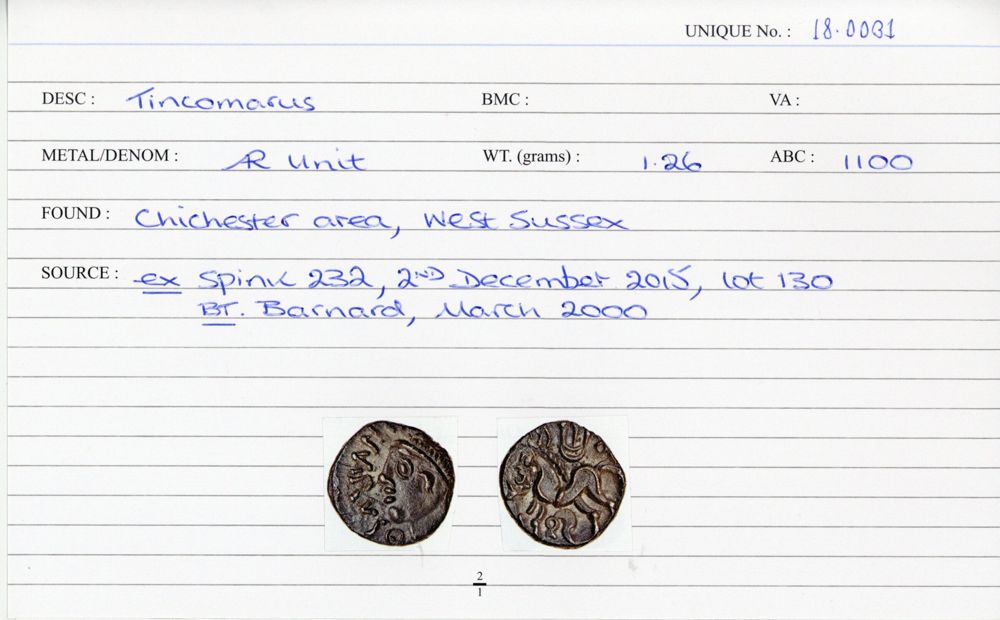 UNIQUE No. : 18.0031
DESC : Tincomarus BMC : VA :
METAL/DENOM : AR Unit WT. (grams) : 1.26 ABC : 1100
FOUND : Chichester area, West Sussex
SOURCE : ex Spink 232, 2ND December 2015, lot 130
BT. Barnard, March 2000
2
1